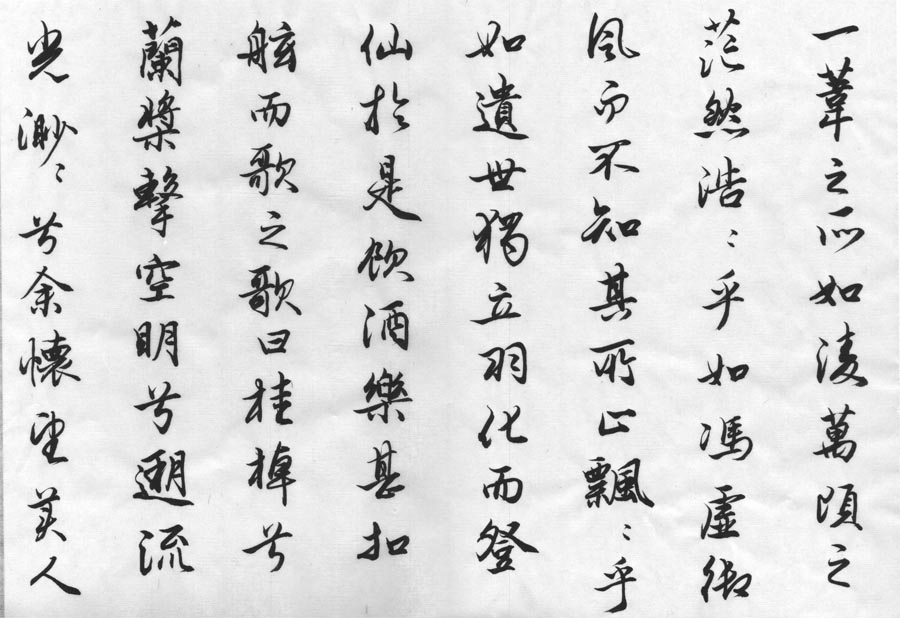 一葦之所如淩萬頃之
茫然浩〻乎如馮虛御
風而不知其所止飄〻乎
如遺世獨立羽化而登
仙於是飲酒樂甚扣
舷而歌之歌曰桂棹兮
蘭槳擊空明兮遡流
光渺〻兮余懷望美人